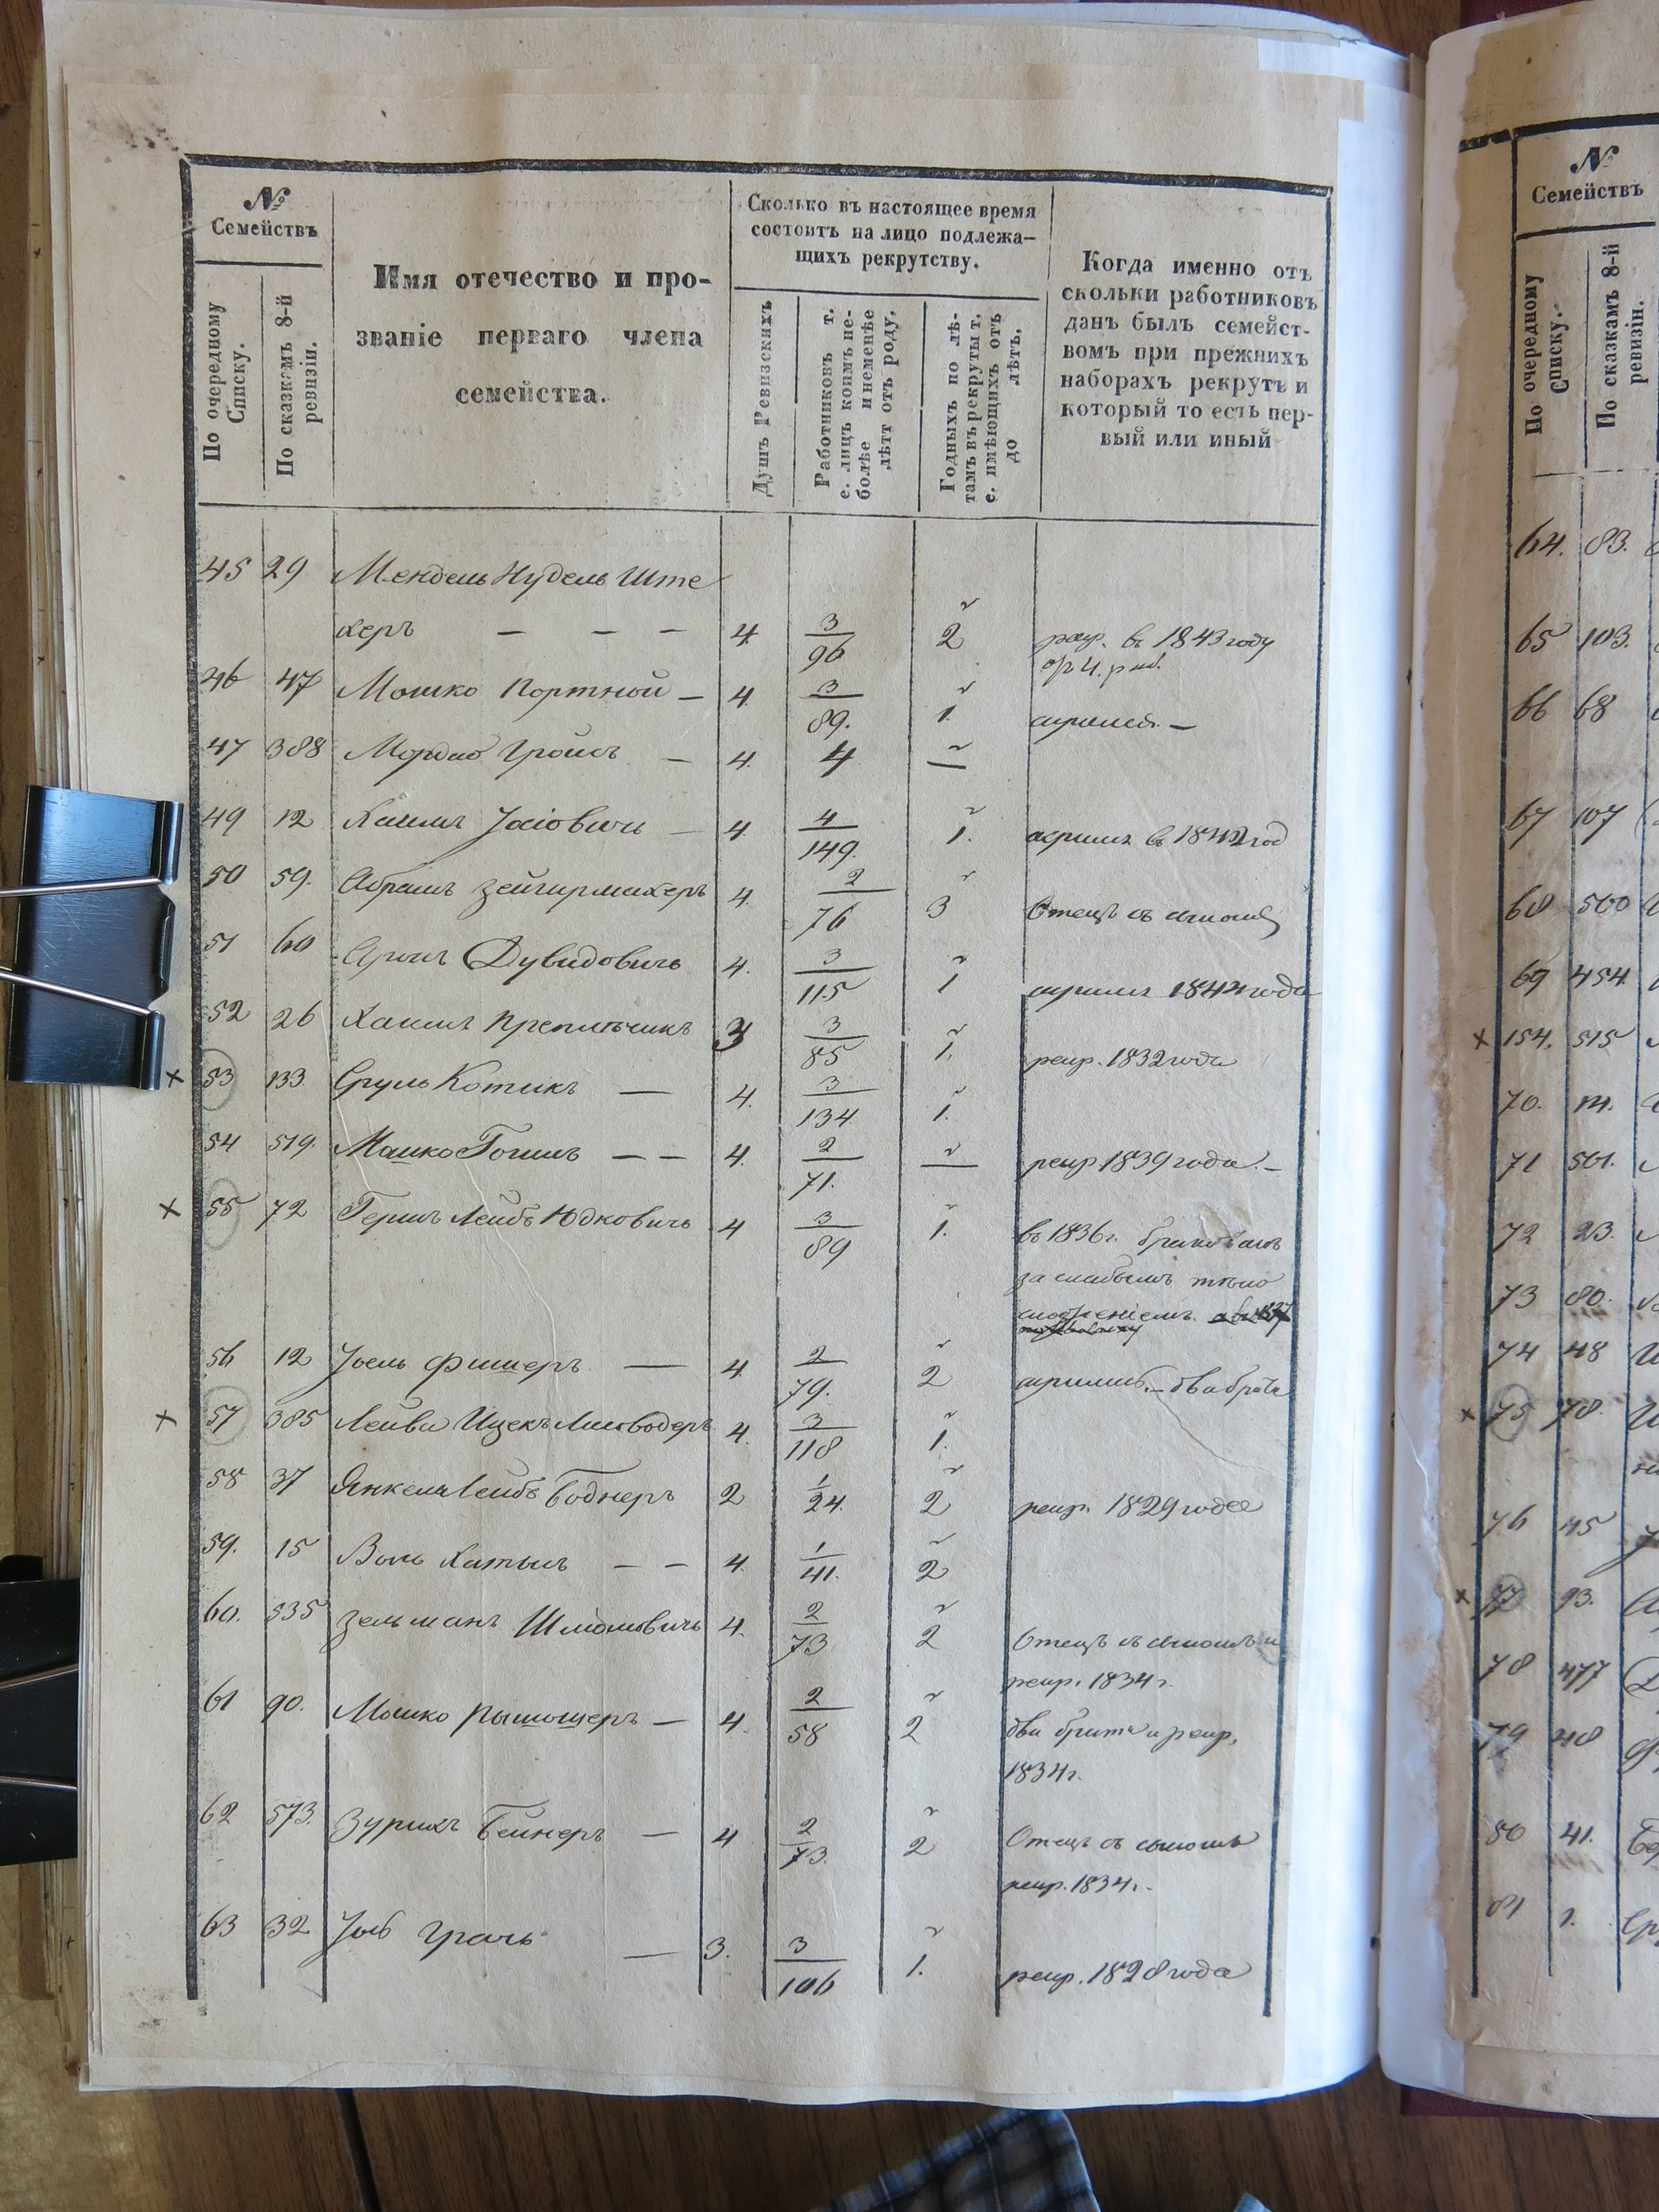 №
Семействъ
По очередному Списку.
По сказкамъ 8-й ревизіи.
Имя отечество и про-
званіе перваго члена
семейства.
Сколько въ настоящее время
состоитъ на лицо подлежа-
щихъ рекрутству.
Душъ Ревизскихъ
Работниковъ т.
е. лицъ коимъ не-
болѣе и неменѣе
лѣтт отъ роду.
Годныхъ по лѣ-
тамъ въ рекруты т.
е. имѣющихъ отъ
до лѣтъ.
Когда именно отъ
скольки работниковъ
данъ былъ семейст-
вомъ при прежнихъ
наборахъ рекрутъ и
который то есть пер-
вый или иный
45 29 Мендель Нудель Ште
керъ — — — 4 3/96 2 рекр. въ 1843 году
46 47 Мошко Портной — 4 3/89. 1.
47 388 Мордко Гройсъ — 4. 4 —
49 12 Хаимъ Јосіовичь — 4. 4/149. 1. въ 1842 год
50 59. Абрамъ Зейгирмахеръ 4. 2/76 3 Отецъ съ сыномъ
51 60 Аронъ Дувидовичь 4. 3/115 1 1844 года
52 26 Хаимъ Крепличникъ 3 3/85 1. рекр. 1832 года
× 53 133 Сруль Котикъ — 4. 3/134 1.
54 519. Мошко Гогинъ — — 4. 2/71. — рекр 1839 года. —
× 55 72 Гершъ Лейбъ Юдковичь 4 3/89 1. въ 1836 г. бракованъ
за слабымъ тѣло
сложеніемъ.
56 12 Јоель Фишеръ — 4. 2/79. 2 два брата
× 57 385 Лейба Ицекъ Лисводеръ 4. 3/118 1.
58 37 Янкель Лейбъ Боднеръ 2 1/24. 2 рекр. 1829 года
59. 15 Воль Катыкъ — — 4. 1/41. 2
60. 535 Зельманъ Шліомовичь 4. 2/73 2 Отецъ съ сыномъ и
рекр. 1834 г.
61 90. Мошко Рышошеръ — 4. 2/58 2 два брата и рекр,
1834 г.
62 573. Зурихъ Бейнеръ — 4 2/73. 2 Отецъ съ сыномъ
рекр. 1834 г.
63 32 Јось Грачь — 3. 3/106 1. рекр. 1828 года
№
Семействъ
По очередному Списку.
По сказкамъ 8-й ревизіи.
64. 83.
65 103.
66 68
67 107
68 500
69 454.
× 154. 515
70. 111.
71 501.
72 23.
73 80.
74 48
× 75 78.
76 45
× 77 93.
78 477
79 48
80 41.
81 1.